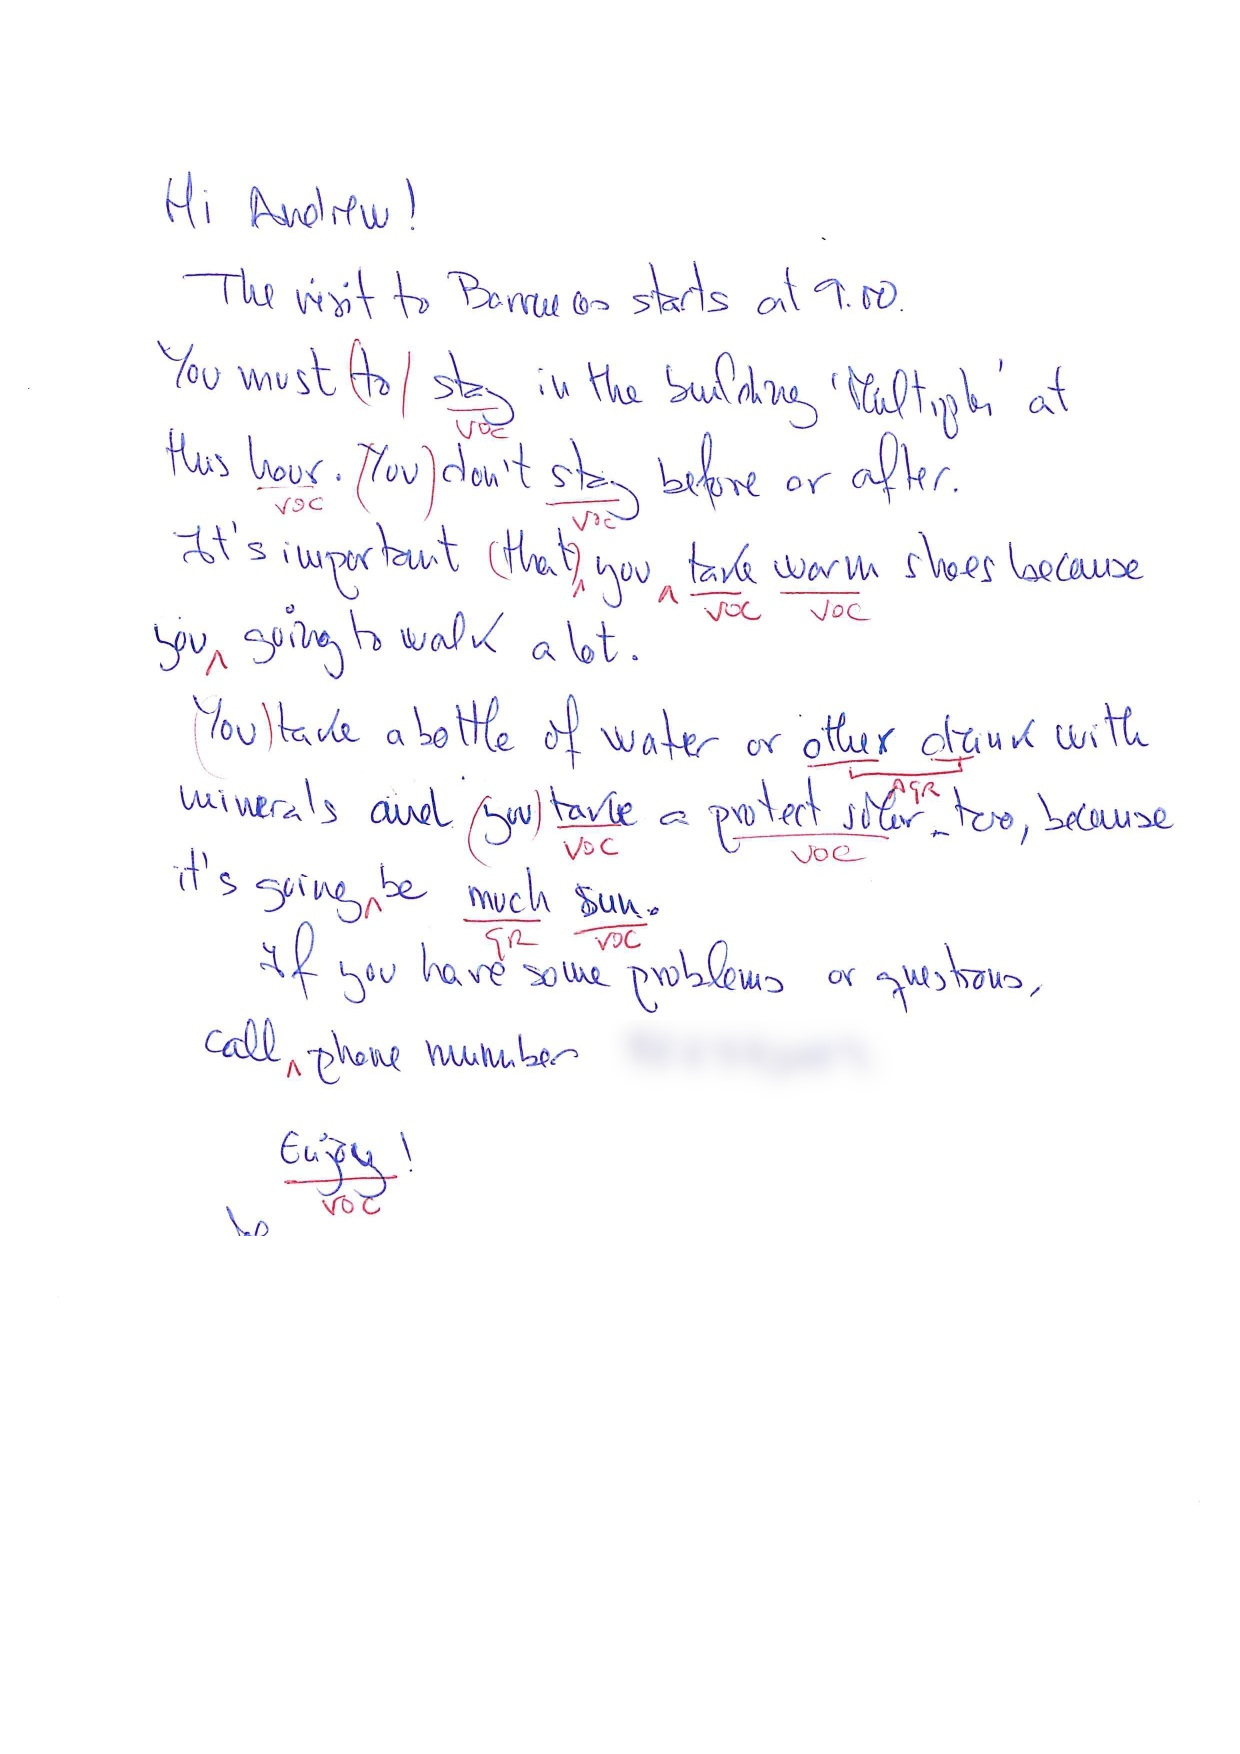 Hi Andrew!
The visit to Barruecos starts at 9.00.
You must (to) stay in the building 'Multiples' at
VOC
this hour. (You) don't stay before or after.
VOC VOC
It's important (that) you take warm shoes because
VOC VOC
you going to walk a lot.
(You) take a bottle of water or other drink with
AGR
minerals and (you) take a protect solar too, because
VOC VOC
it's going be much sun.
GR VOC
If you have some problems or questions,
call phone number
Enjoy!
VOC